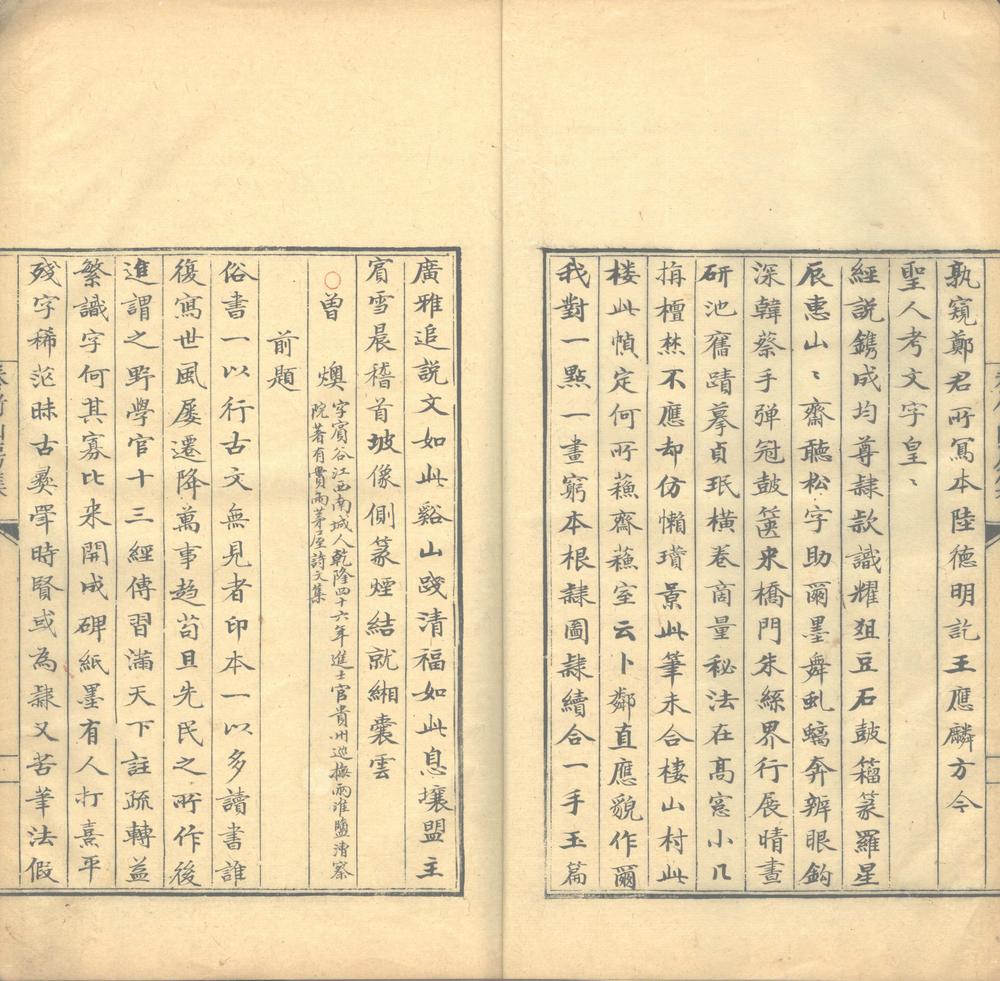 孰窺鄭君所寫本陸德明訖王應麟方今
聖人考文字皇〻
經說鐫成均尊隸款識耀俎豆石鼓籀篆羅星
辰惠山〻齋聽松字助爾墨舞虬螭奔辨眼鈎
深韓蔡手彈冠鼓篋来橋門朱絲界行展晴晝
研池舊蹟摹貞珉橫卷商量秘法在髙窓小几
搆檀㷊不應却仿懶瓚景此筆未合棲山村此
樓此幀定何所蘓齋蘓室云卜鄰直應貌作爾
我對一點一畫窮本根隸圖隸續合一手玉篇
廣雅追説文如此谿山踐清福如此息壤盟主
賓雪晨稽首坡像側篆煙結就緗囊雲
○曾燠 字賓谷江西南城人乾隆四十六年進士官貴州巡撫兩淮鹽漕察
院著有賞雨茅屋詩文集
前題
俗書一以行古文無見者印本一以多讀書誰
復寫世風屢遷降萬事趋苟且先民之所作後
進謂之野學官十三經傳習滿天下註疏轉益
繁識字何其寡比来開成碑紙墨有人打熹平
殘字稀茫昧古彜斝時賢或為隸又苦筆法假